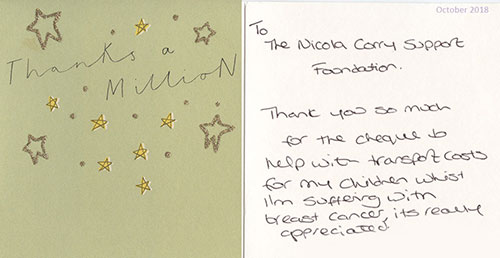 Thanks a
MillioN
October 2018
To
The Nicola Corry Support
Foundation.
Thank you so much
for the cheque to
help with transport costs
for my children whist
I'm suffering with
breast cancer, its really
appreciated